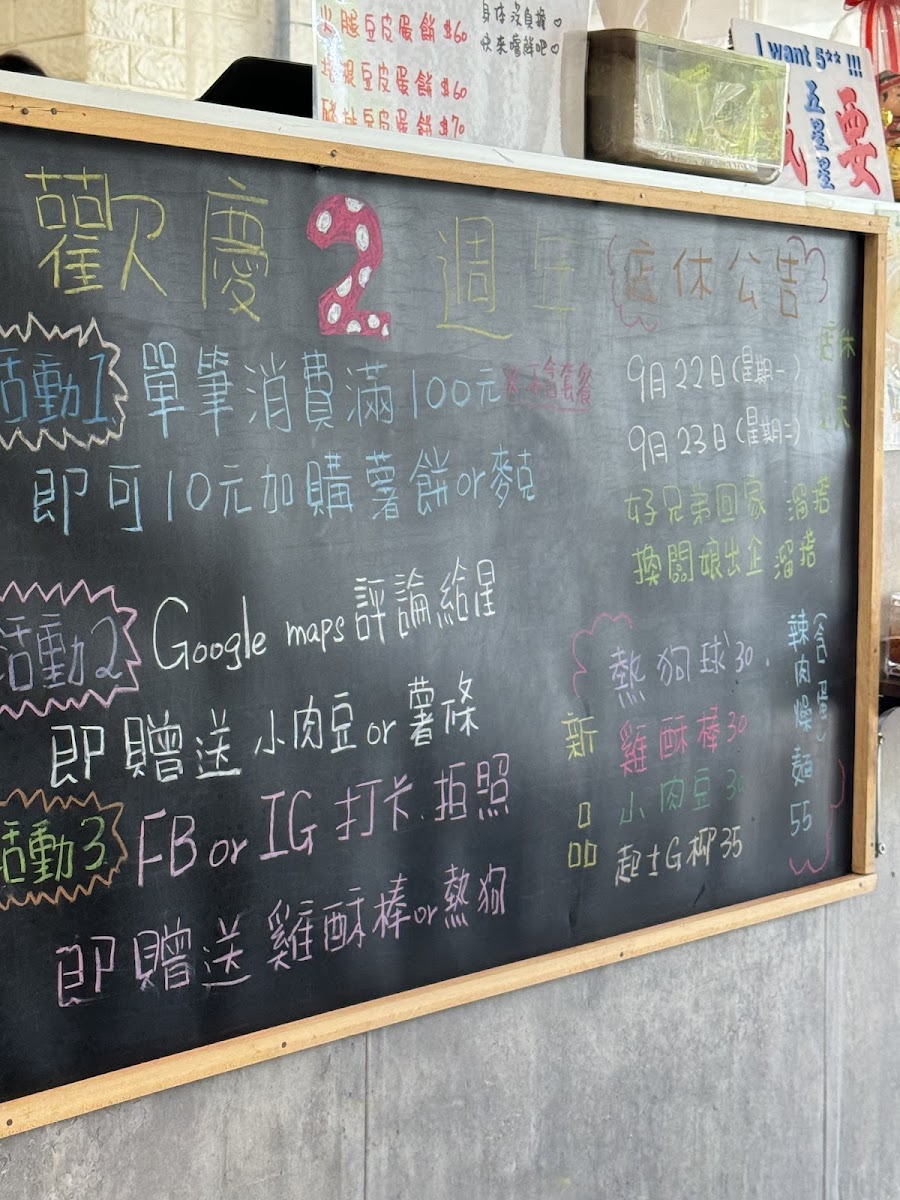 火腿豆皮蛋餅$60
培根豆皮蛋餅$60
豬排豆皮蛋餅$70
身体沒負擔♡
快來嚐鮮吧♡
I want 5** !!!
五星星
要
歡慶2週年
活動1 單筆消費滿100元 ※不含套餐
即可10元加購薯餅or麥克
活動2 Google maps評論給星
即贈送小肉豆or薯條
活動3 FB or IG打卡.拍照
即贈送雞酥棒or熱狗
店休公告
9月22日(星期一)
9月23日(星期二)
店休
天
好兄弟回家 溜搭
換闆娘出企 溜搭
新品
熱狗球30.
雞酥棒30
小肉豆30
起士G柳35
辣肉燥麵55
(含蛋)